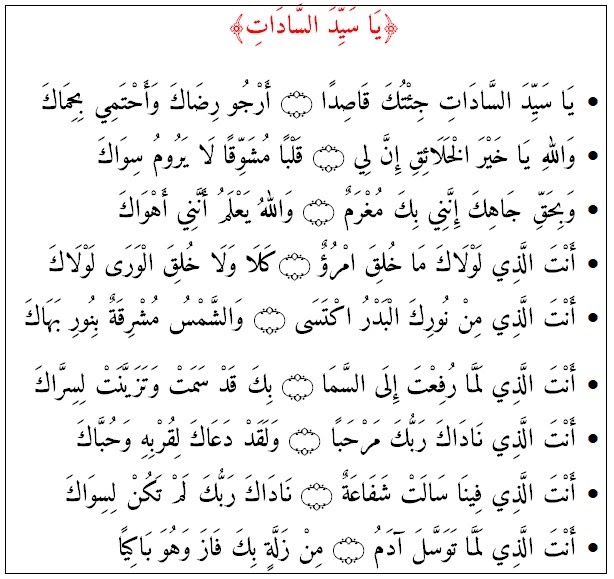 ﴿يَا سَيِّدَ السَّادَاتِ﴾
• يَا سَيِّدَ السَّادَاتِ جِئْتُكَ قَاصِدًا ۝ أَرْجُو رِضَاكَ وَأَحْتَمِي بِحِمَاكَ
• وَاللهِ يَا خَيْرَ الْخَلَائِقِ إِنَّ لِي ۝ قَلْبًا مُشَوِّقًا لَا يَرُومُ سِوَاكَ
• وَبِحَقِّ جَاهِكَ إِنَّنِي بِكَ مُغْرَمٌ ۝ وَاللهُ يَعْلَمُ أَنَّنِي أَهْوَاكَ
• أَنْتَ الَّذِي لَوْلَاكَ مَا خُلِقَ امْرُؤٌ ۝ كَلَا وَلَا خُلِقَ الْوَرَى لَوْلَاكَ
• أَنْتَ الَّذِي مِنْ نُورِكَ الْبَدْرُ اكْتَسَى ۝ وَالشَّمْسُ مُشْرِقَةٌ بِنُورِ بَهَاكَ
• أَنْتَ الَّذِي لَمَّا رُفِعْتَ إِلَى السَّمَا ۝ بِكَ قَدْ سَمَتْ وَتَزَيَّنَتْ لِسِرَّاكَ
• أَنْتَ الَّذِي نَادَاكَ رَبُّكَ مَرْحَبًا ۝ وَلَقَدْ دَعَاكَ لِقُرْبِهِ وَحُبَّاكَ
• أَنْتَ الَّذِي فِينَا سَالَتْ شَفَاعَةٌ ۝ نَادَاكَ رَبُّكَ لَمْ تَكُنْ لِسِوَاكَ
• أَنْتَ الَّذِي لَمَّا تَوَسَّلَ آدَمُ ۝ مِنْ زَلَّةٍ بِكَ فَازَ وَهُوَ بَاكِيًا